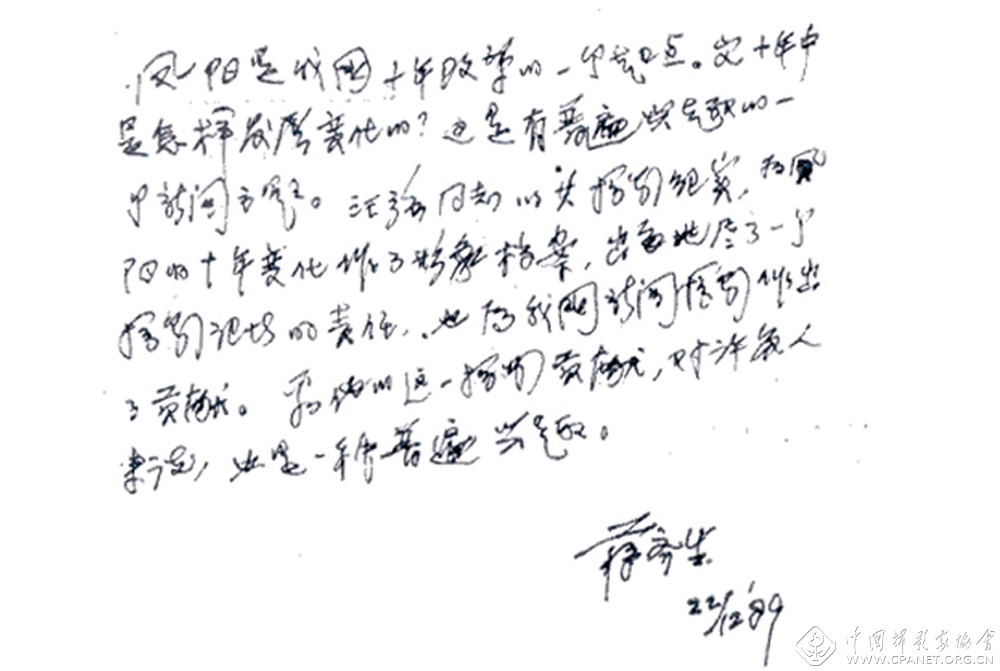 凤阳是我国十年改革的一个起点。它十年中
是怎样发生变化的？这是有普遍兴趣的一
个新闻主题。汪强同志以其摄影纪实，为凤
阳的十年变化作了形象档案，出色地尽了一个
摄影记者的责任，也为我国新闻摄影作出
了贡献。看他的这一摄影贡献，对许多人
来说，也是一种普遍兴趣。
蒋齐生
22/12 '89
中国摄影家协会
WWW.CPANET.ORG.CN